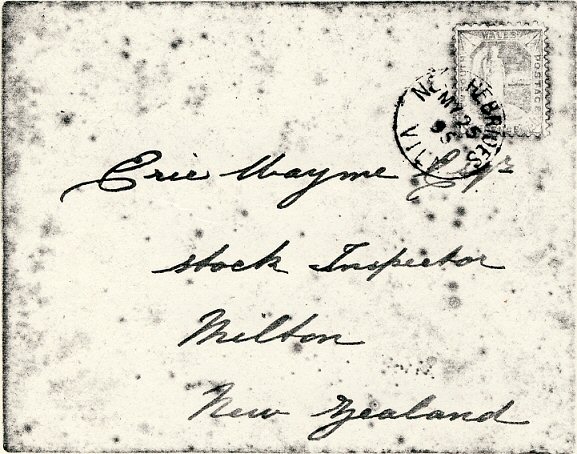 WALES
POSTAGE
NEW HEBRIDES
MY 25
95
VILA
Eric Wayme Esqr
Stock Inspector
Milton
New Zealand